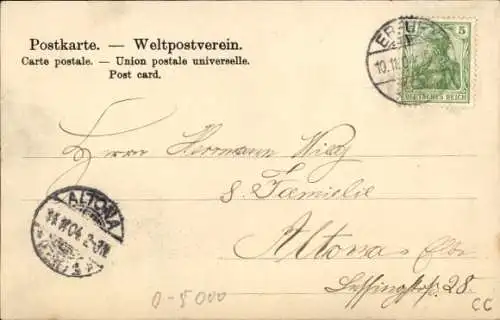 Postkarte. — Weltpostverein.
Carte postale. — Union postale universelle.
Post card.
5
DEUTSCHES REICH
10.11.04
Herrn Herrmann
& Familie
Altona Elbe
Lessingstr. 28
ALTONA
11.11.04. 2-3N.
0-5000
CC